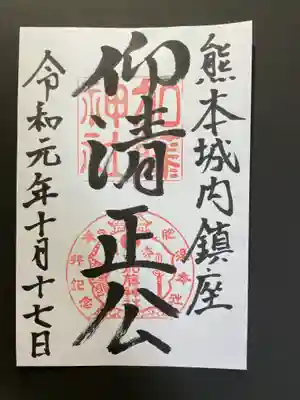 熊本城内鎮座
仰清正公
加藤神社
令和元年十月十七日